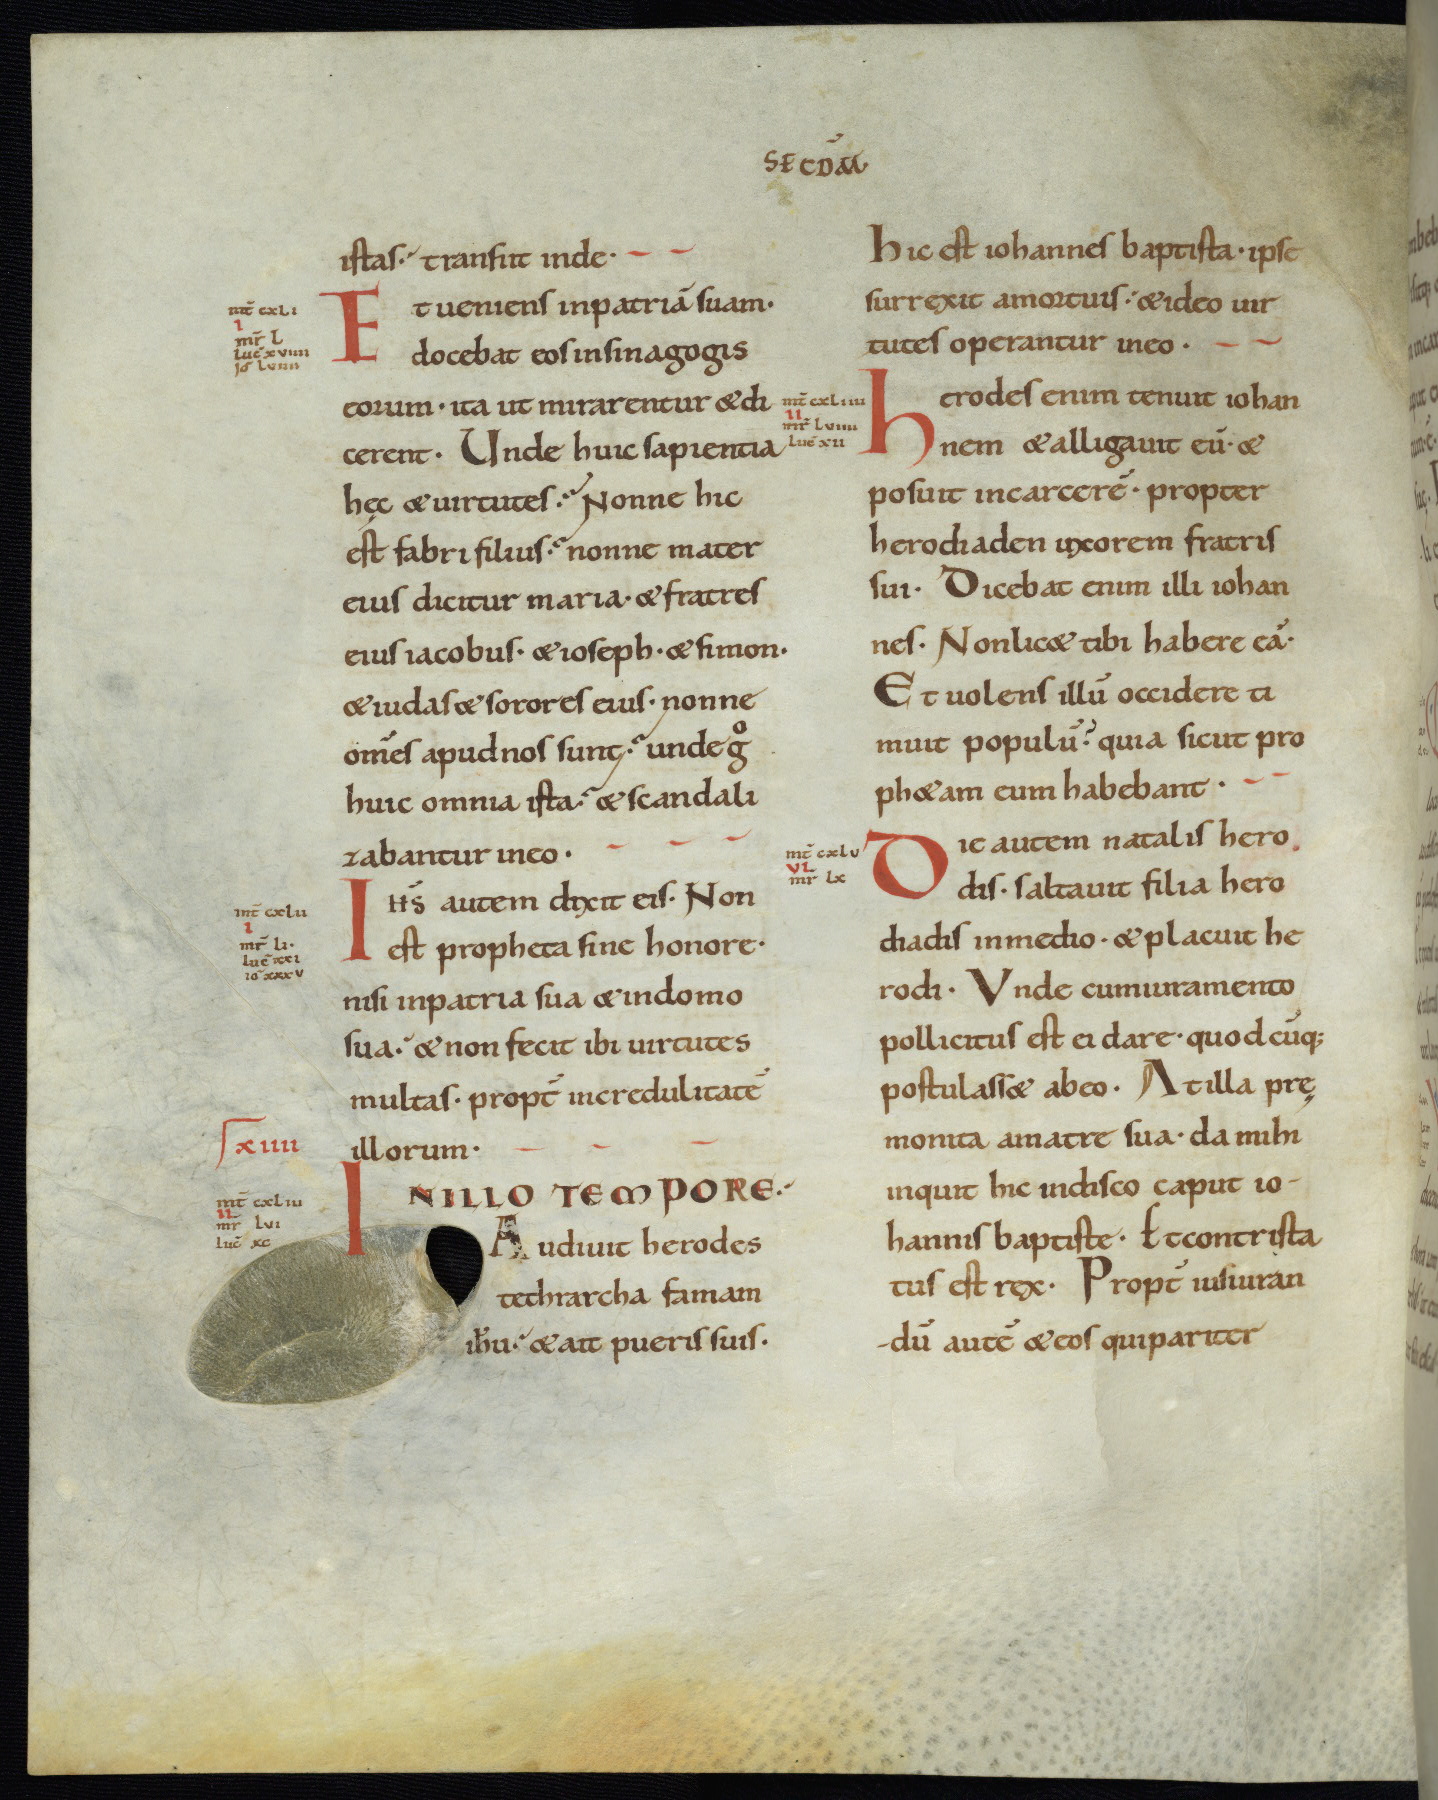 SECDM̄
istas· transiit inde·
mt̄ cxli
I
mr̄ L
luc̄ xviiii
io lviiii
Et ueniens inpatriā suam·
docebat eos insinagogis
eorum· ita ut mirarentur & di
cerent· Unde huic sapientia
hęc & uirtutes· Nonne hic
est fabri filius· nonne mater
eius dicitur maria· & fratres
eius iacobus· & ioseph· & simon·
& iudas & sorores eius· nonne
om̄es apud nos sunt· unde gͦ
huic omnia ista· & scandali
zabantur ineo·
mt̄ cxlii
I
mr̄ li·
luc̄ xxi
io xxxv
Ihs̄ autem dixit eis· Non
est propheta sine honore·
nisi inpatria sua & indomo
sua· & non fecit ibi uirtutes
multas· propt̄ incredulitatē
illorum·
xiiii
mt̄ cxliii
II
mr̄ lvi
luc̄ xc
INILLO TEMPORE·
Audiuit herodes
tethrarcha famam
ihu· & ait pueris suis·
hic est iohannes baptista· ipse
surrexit amortuis· & ideo uir
tutes operantur ineo·
mt̄ cxliiii
II
mr̄ lviiii
luc̄ xii
herodes enim tenuit iohan
nem & alligauit eū· &
posuit incarcerē· propter
herodiaden uxorem fratris
sui· Dicebat enim illi iohan
nes· Nonlic& tibi habere eā·
Et uolens illū occidere ti
muit populū· quia sicut pro
ph&am eum habebant·
mt̄ cxlv
VI
mr̄ lx
Die autem natalis hero
dis· saltauit filia hero
diadis inmedio· & placuit he
rodi· Vnde cumiuramento
pollicitus est ei dare· quodcūq;
postulass& abeo· At illa prę
monita amatre sua· da mihi
inquit hic indisco caput io-
hannis baptiste· Et contrista
tus est rex· Propt̄ iusiuran
-dū autē & eos quipariter